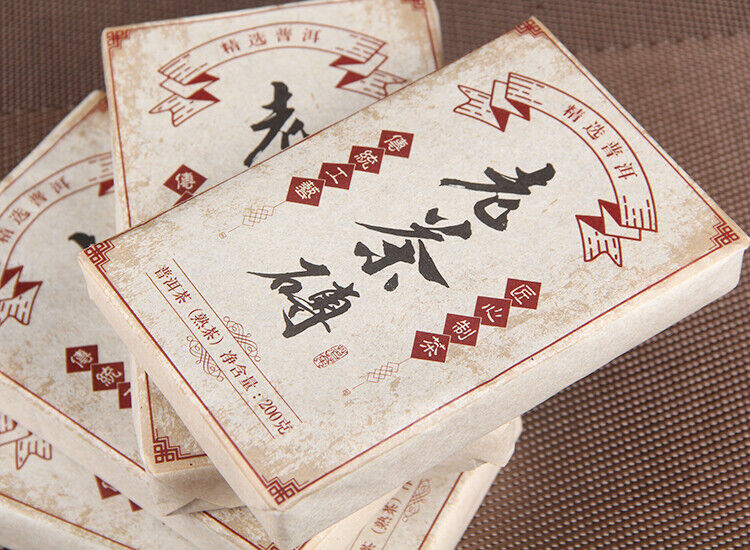 精选普洱
老茶磚
傳統工藝
匠心制茶
普洱茶（熟茶）净含量：200克
精选普洱
老
傳
精选普洱
傳統